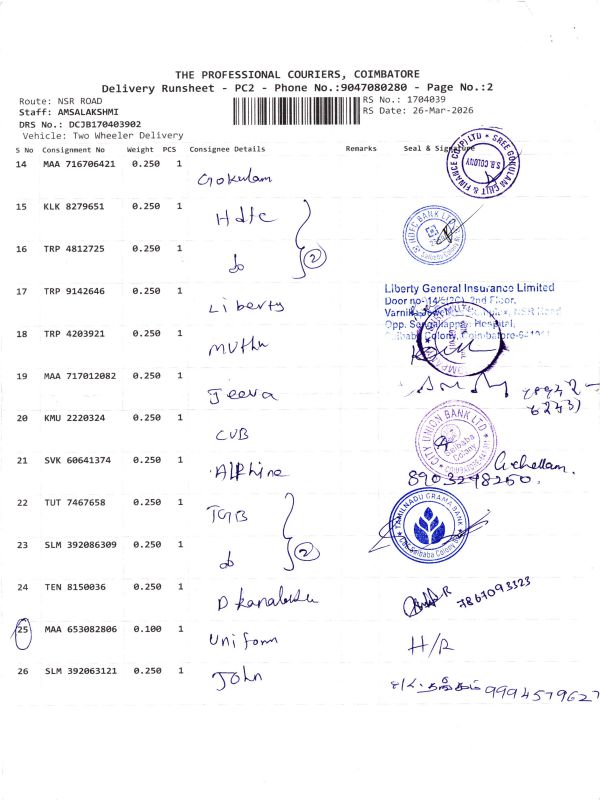 THE PROFESSIONAL COURIERS, COIMBATORE
Delivery Runsheet - PC2 - Phone No.:9047080280 - Page No.:2
Route: NSR ROAD
RS No.: 1704039
Staff: AMSALAKSHMI
RS Date: 26-Mar-2026
DRS No.: DCJB170403902
Vehicle: Two Wheeler Delivery
S No Consignment No Weight PCS Consignee Details Remarks Seal & Signature
14 MAA 716706421 0.250 1 Gokulam
SREE GOKULAM CHIT & FINANCE CO (P) LTD
S.B. COLONY
15 KLK 8279651 0.250 1 Hdfc
HDFC BANK LTD
16 TRP 4812725 0.250 1 do
2
17 TRP 9142646 0.250 1 Liberty
Liberty General Insurance Limited
2nd Floor,
Opp. Hospital,
Colony, Coimbatore-641011
18 TRP 4203921 0.250 1 Muthu
19 MAA 717012082 0.250 1 Jeeva
20 KMU 2220324 0.250 1 CUB
CITY UNION BANK LTD
Saibaba Colony
21 SVK 60641374 0.250 1 Alphine
8903298250.
22 TUT 7467658 0.250 1 TGB
TAMILNADU GRAMA BANK
Saibaba Colony
23 SLM 392086309 0.250 1 do
2
24 TEN 8150036 0.250 1
7867093323
25 MAA 653082806 0.100 1 Uniform
H/R
26 SLM 392063121 0.250 1 John
9994579627